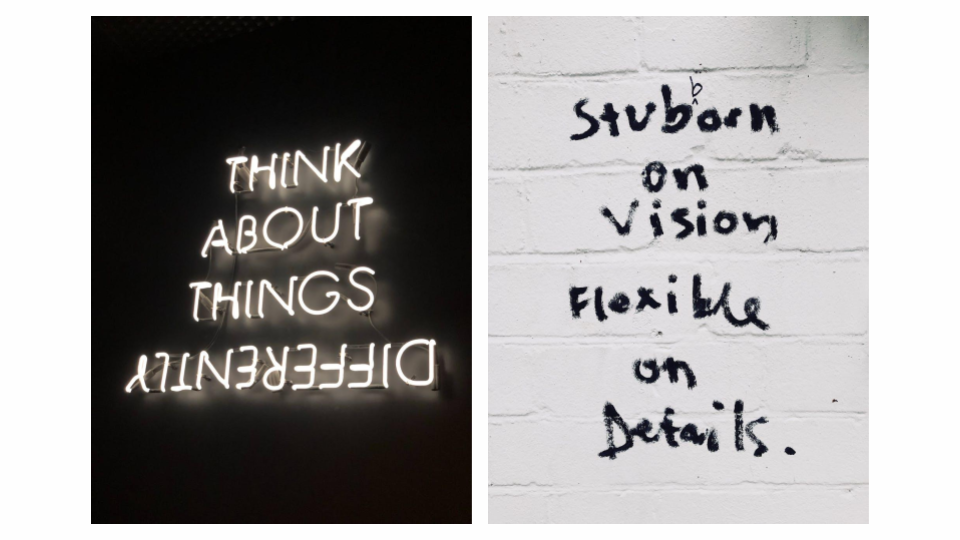 THINK
ABOUT
THINGS
DIFFERENTLY
Stubborn
on
Vision
Flexible
on
Details.